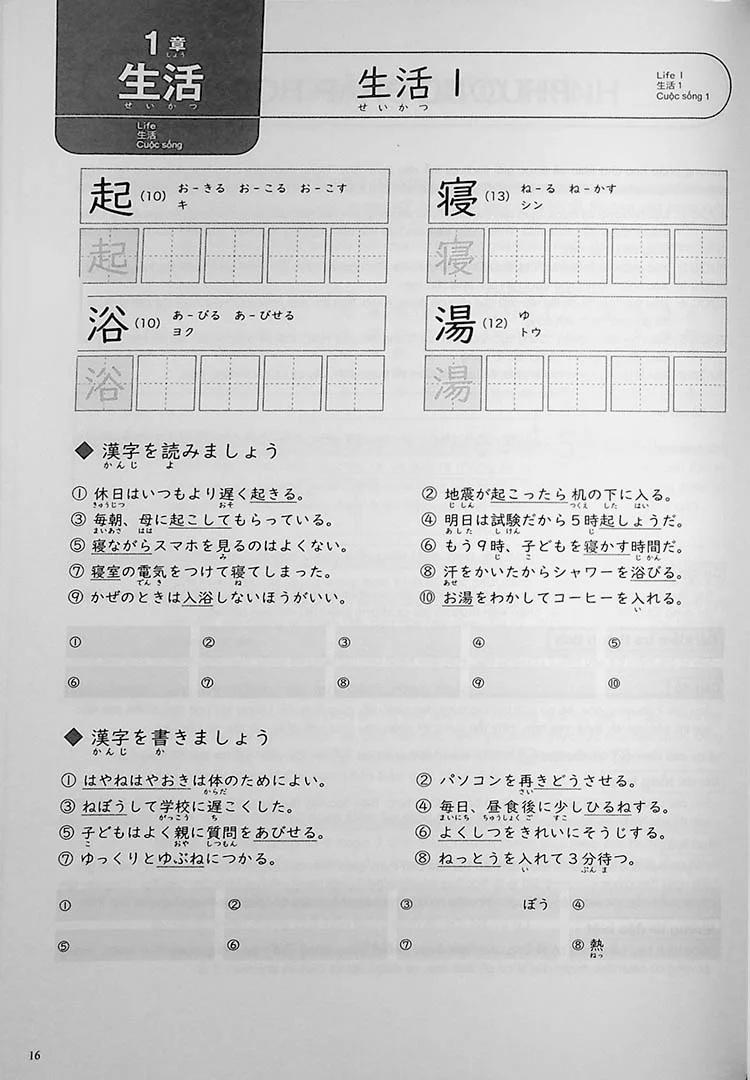 1章
しょう
生活
せいかつ
Life
生活
Cuộc sống
生活 1
せいかつ
Life 1
生活 1
Cuộc sống 1
起 (10) お-きる お-こる お-こす
キ
寝 (13) ね-る ね-かす
シン
起
寝
浴 (10) あ-びる あ-びせる
ヨク
湯 (12) ゆ
トウ
浴
湯
◆ 漢字を読みましょう
かんじ よ
① 休日はいつもより遅く起きる。
きゅうじつ おそ
② 地震が起こったら机の下に入る。
じしん つくえ した はい
③ 毎朝、母に起こしてもらっている。
まいあさ はは
④ 明日は試験だから5時起しょうだ。
あした しけん じ
⑤ 寝ながらスマホを見るのはよくない。
み
⑥ もう9時、子どもを寝かす時間だ。
じ こ じかん
⑦ 寝室の電気をつけて寝てしまった。
でんき ね
⑧ 汗をかいたからシャワーを浴びる。
あせ
⑨ かぜのときは入浴しないほうがいい。
⑩ お湯をわかしてコーヒーを入れる。
い
① ② ③ ④ ⑤
⑥ ⑦ ⑧ ⑨ ⑩
◆ 漢字を書きましょう
かんじ か
① はやねはやおきは体のためによい。
からだ
② パソコンを再きどうさせる。
さい
③ ねぼうして学校に遅こくした。
がっこう ち
④ 毎日、昼食後に少しひるねする。
まいにち ちゅうしょくご すこ
⑤ 子どもはよく親に質問をあびせる。
こ おや しつもん
⑥ よくしつをきれいにそうじする。
⑦ ゆっくりとゆぶねにつかる。
⑧ ねっとうを入れて3分待つ。
い ぷんま
① ② ③ ぼう ④
⑤ ⑥ ⑦ ⑧ 熱
ねっ
16